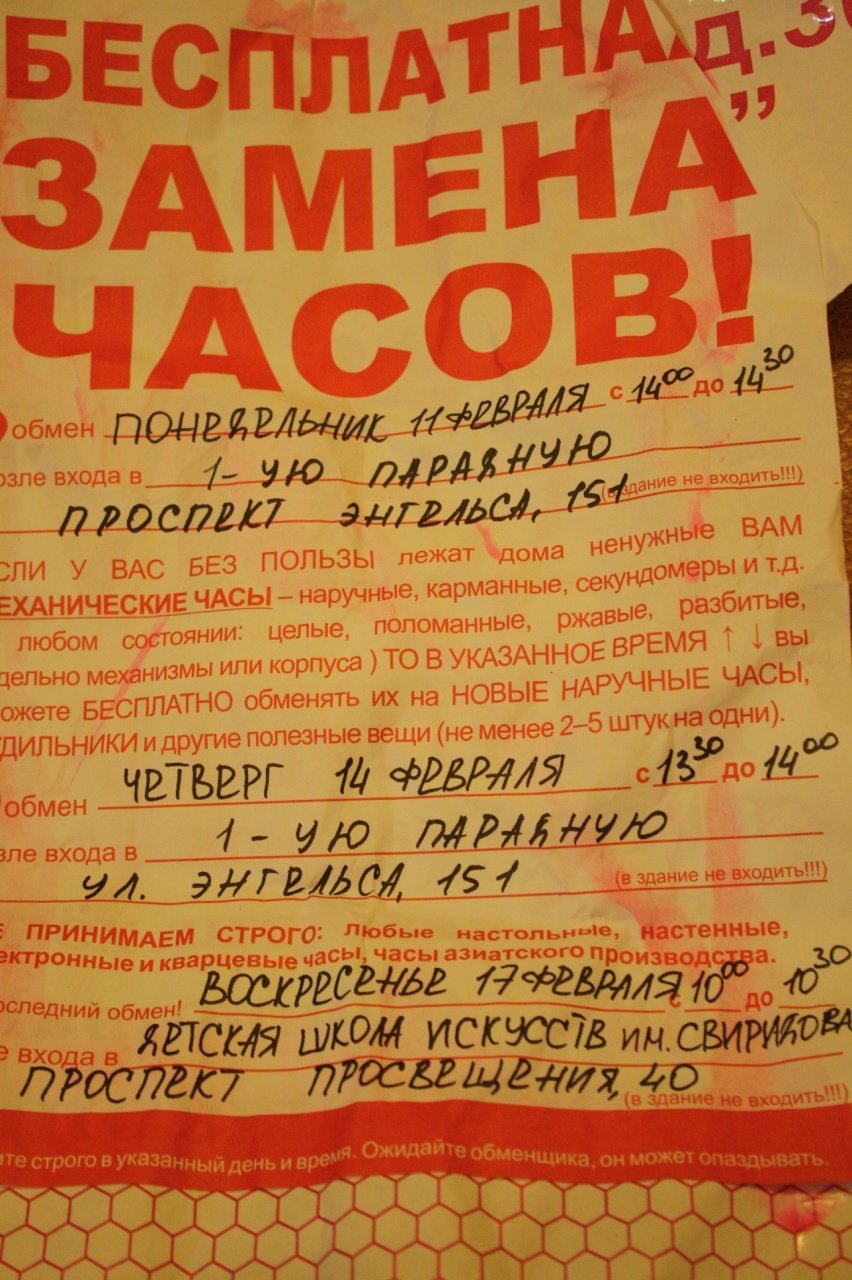 БЕСПЛАТНАЯ д.30
ЗАМЕНА”
ЧАСОВ!
обмен ПОНЕДЕЛЬНИК 11 ФЕВРАЛЯ с 14⁰⁰ до 14³⁰
озле входа в 1-УЮ ПАРАДНУЮ
ПРОСПЕКТ ЭНГЕЛЬСА, 151 (в здание не входить!!!)
СЛИ У ВАС БЕЗ ПОЛЬЗЫ лежат дома ненужные ВАМ
ЕХАНИЧЕСКИЕ ЧАСЫ – наручные, карманные, секундомеры и т.д.
любом состоянии: целые, поломанные, ржавые, разбитые,
дельно механизмы или корпуса ) ТО В УКАЗАННОЕ ВРЕМЯ ↑ ↓ вы
ожете БЕСПЛАТНО обменять их на НОВЫЕ НАРУЧНЫЕ ЧАСЫ,
ДИЛЬНИКИ и другие полезные вещи (не менее 2–5 штук на одни).
обмен ЧЕТВЕРГ 14 ФЕВРАЛЯ с 13³⁰ до 14⁰⁰
зле входа в 1-УЮ ПАРАДНУЮ
УЛ. ЭНГЕЛЬСА, 151 (в здание не входить!!!)
Е ПРИНИМАЕМ СТРОГО: любые настольные, настенные,
ектронные и кварцевые часы, часы азиатского производства.
оследний обмен! ВОСКРЕСЕНЬЕ 17 ФЕВРАЛЯ с 10⁰⁰ до 10³⁰
е входа в ДЕТСКАЯ ШКОЛА ИСКУССТВ ИМ. СВИРИДОВА
ПРОСПЕКТ ПРОСВЕЩЕНИЯ, 40 (в здание не входить!!!)
ите строго в указанный день и время. Ожидайте обменщика, он может опаздывать.